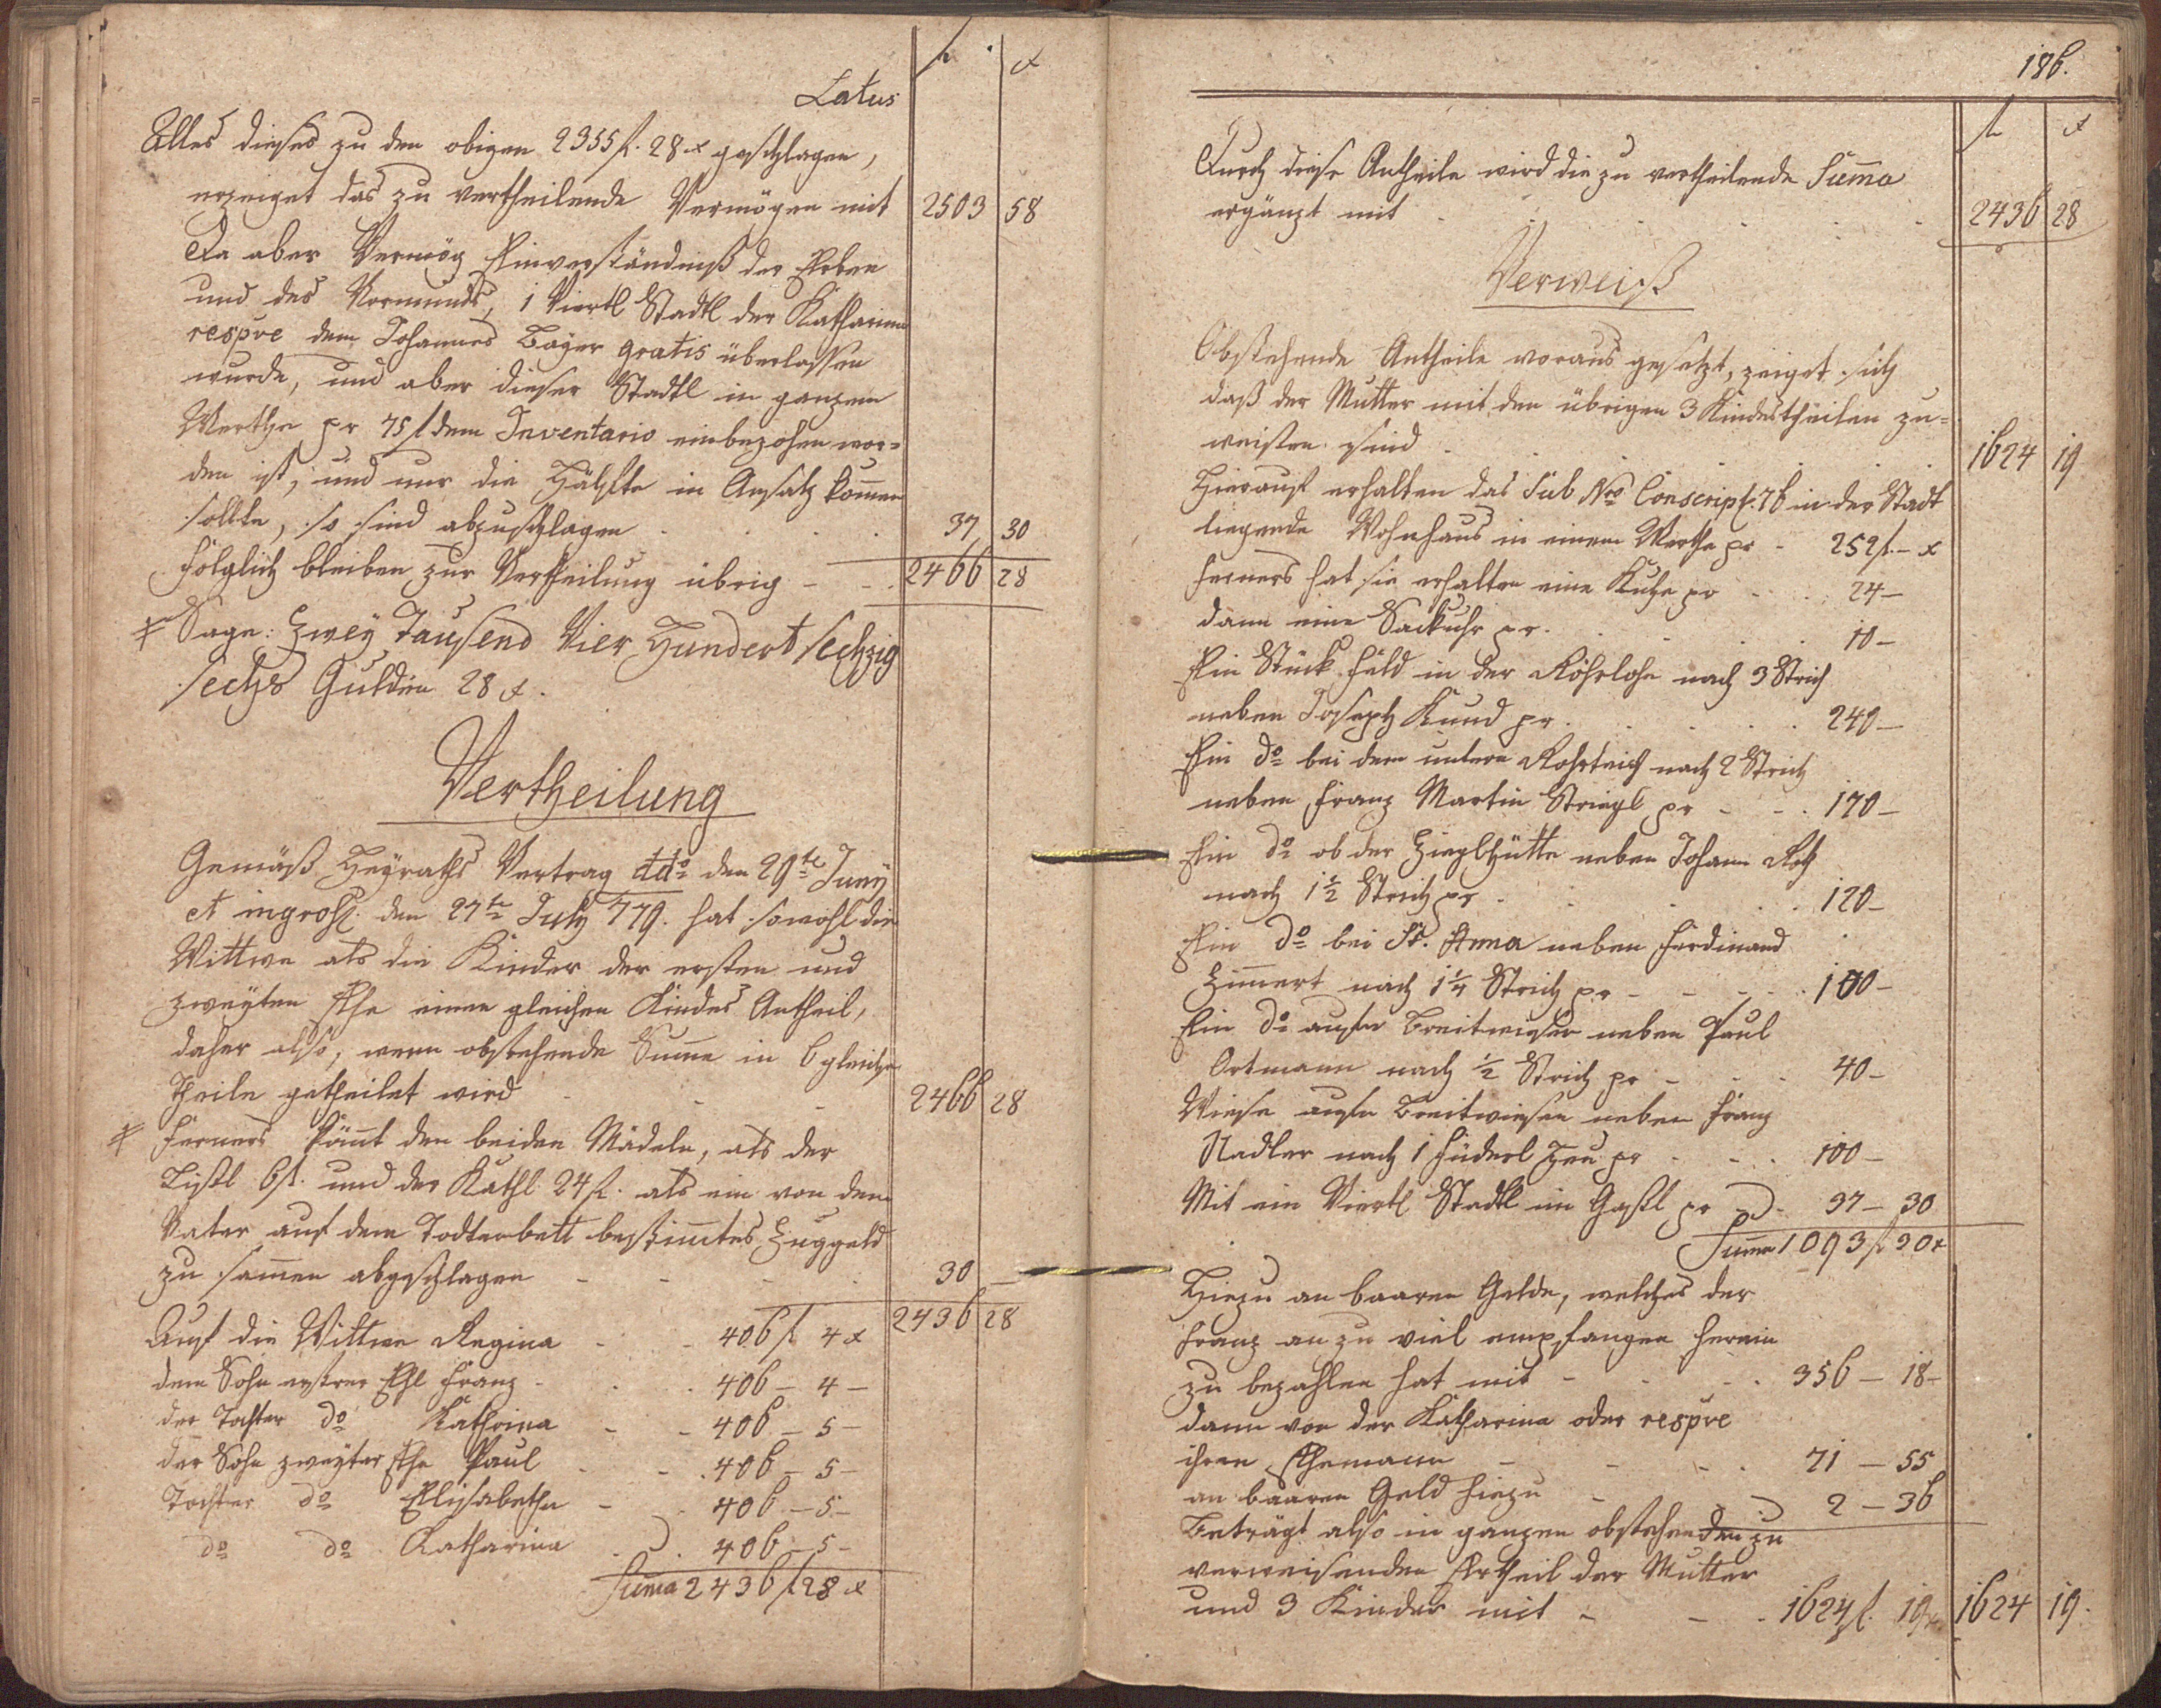 fl. x
Latus
Alles dieses zu den obigen 2355 fl. 28 x geschlagen,
erzeiget das zu vertheilende Vermögen mit 2503 58
Da aber Vermög Einverständniß der Erben
und des Vormunds, 1 Viertl Stadtl der Katharina
respve dem Johannes Bayer gratis überlassen
wurde, und aber dieser Stadtl in ganzem
Werthe pr 75 fl dem Inventario einbezohen wor-
den ist, und nur die Hälfte in Ansatz komen
sollte, so sind abzuschlagen . . . 37 30
Folglich bleiben zur Vertheilung übrig - - . 2466 28
Sage: Zwey Tausend Vier Hundert sechzig
sechs Gulden 28 x.
Vertheilung
Gemäß Heyraths Vertrag ddo den 29te Juny
et ingross. den 27te July 779. hat sowohl die
Wittwe als die Kinder der ersten und
zweyten Ehe einen gleichen Kindes Antheil,
daher also, wenn obstehende Summe in 6 gleiche
Theile getheilet wird - - - 2466 28
Ferners kömt den beiden Mädeln, als der
Lißl 6 fl. und der Kathl 24 fl. als ein von dem
Vater auf dem Todtenbett bestimtes Zuggeld
zu samen abgeschlagen - - - . 30 —
2436 28
Auf die Wittwe Regina - - 406 fl 4 x
dem Sohn erster Ehe Franz - . . 406 - 4 -
der Tochter do Kathrina - - 406 - 5 -
der Sohn zweyter Ehe Paul - - . 406 - 5 -
Tochter do Elisabetha - . 406 - 5 -
do do Katharina . . 406 - 5 -
Suma 2436 fl 28 x
186.
fl x
Durch diese Antheile wird die zu vertheilende Suma
ergänzt mit . . . . . 2436 28
Verweiß
Obstehende Antheile voraus gesetzt, zeiget sich
daß der Mutter mit den übrigen 3 Kindestheilen zu-
weisen sind . . . . . 1624 19
Hierauf erhalten das Sub Nro Conscript. 76 in der Stadt
liegende Wohnhaus in einem Werthe pr - 252 fl. - x
Ferners hat sie erhalten eine Kuhe pr - . . 24 -
dann eine Sackuhr pr. . . . . 10 -
Ein Stück Feld in der Röhrlohe nach 3 Strich
neben Joseph Kund pr . . . . . 240 -
Ein do bei dem untern Rohrteich nach 2 Strich
neben Franz Martin Striegl pr - - . 170 -
Ein do ob der Zieglhütte neben Johann
nach 1½ Strich pr - . . . . 120 -
Ein do bei St. Anna neben Ferdinand
Zimert nach 1¼ Strich pr - - - . . 100 -
Ein do aufn Breitwieser neben Paul
Ortmann nach ½ Strich pr - - . 40 -
Wiese aufn Breitwiesen neben Franz
Stadler nach 1 Füderl Heu pr - - . 100 -
Mit ein Viertl Stadtl im Gaßl pr - - 37 - 30
Suma 1093 fl 30 x
Hiezu an baaren Gelde, welches der
Franz an zu viel empfangen herein
zu bezahlen hat mit - - . . 356 - 18 -
dann von der Katharina oder respve
ihren Ehemann - - - . 71 - 55
an baaren Geld hiezu - - 2 - 36
Beträgt also in ganzen obstehenden zu
verweisenden Ertheil der Mutter
und 3 Kinder mit - - . 1624 fl. 19 x 1624 19.